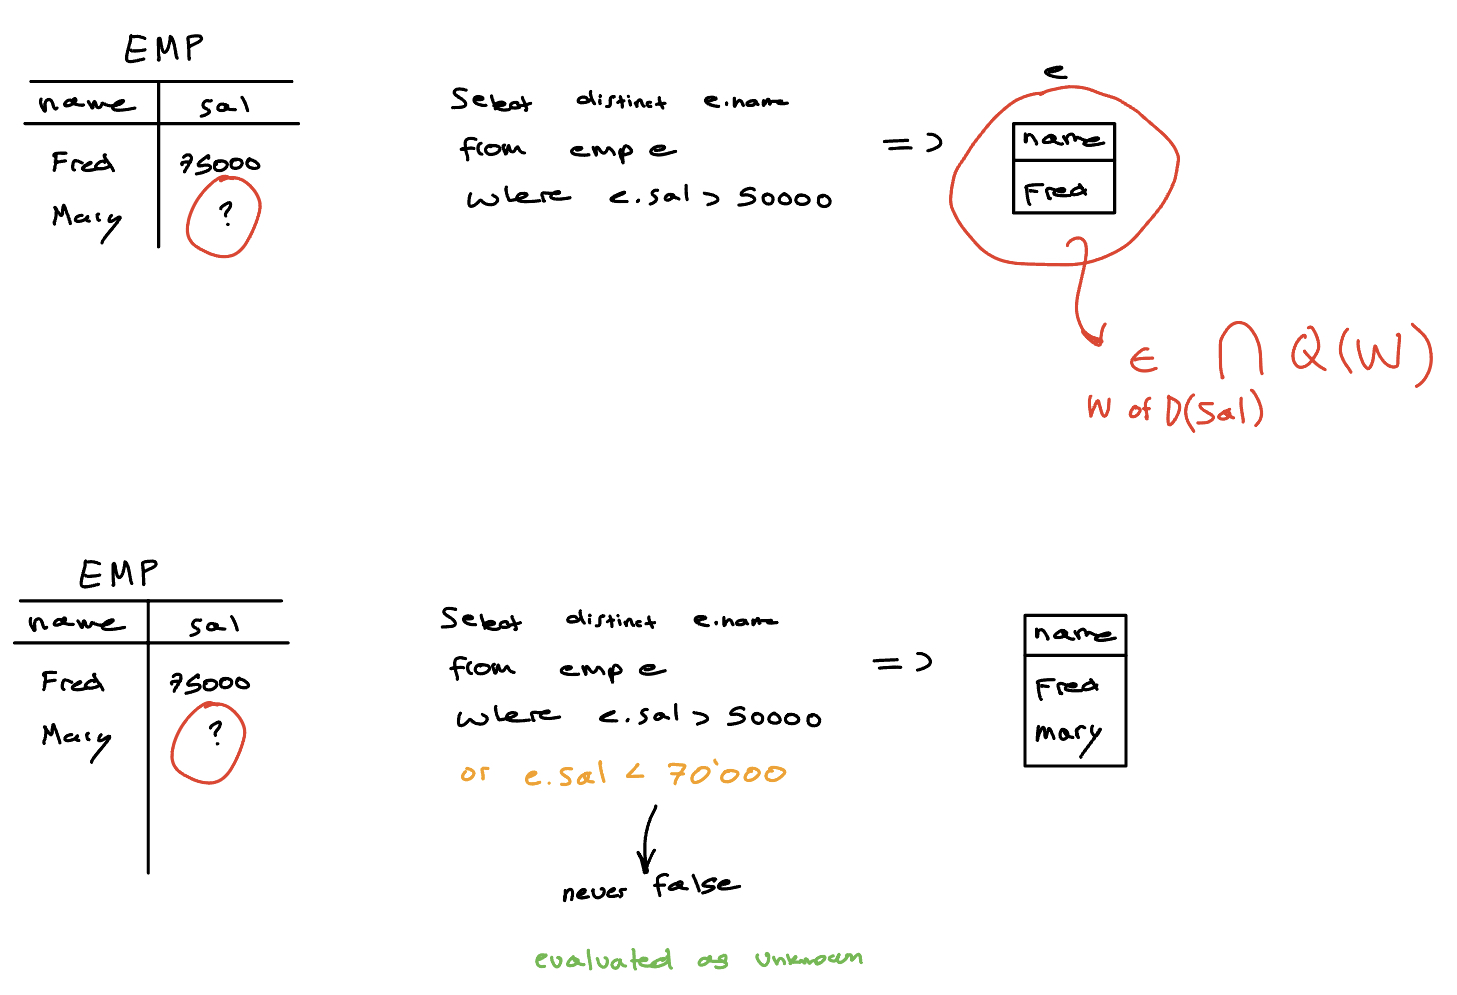 EMP
name sal
Fred 75000
Mary ?
Select distinct e.name
from emp e
where e.sal > 50000
=>
e
name
Fred
∈ ⋂ Q(W)
W of D(Sal)
EMP
name sal
Fred 75000
Mary ?
Select distinct e.name
from emp e
where e.sal > 50000
or e.sal < 70'000
never false
evaluated as unknown
=>
name
Fred
mary